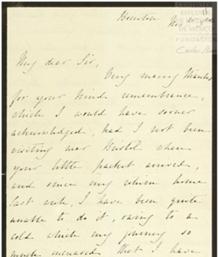 My dear Sir,
Very many thanks
for your kind remembrance,
which I would have sooner
acknowledged, had I not been
visiting near Bristol when
your little packet arrived,
and since my return home
last week, I have been quite
unable to do it, owing to a
cold which my journey so
much increased. But I have